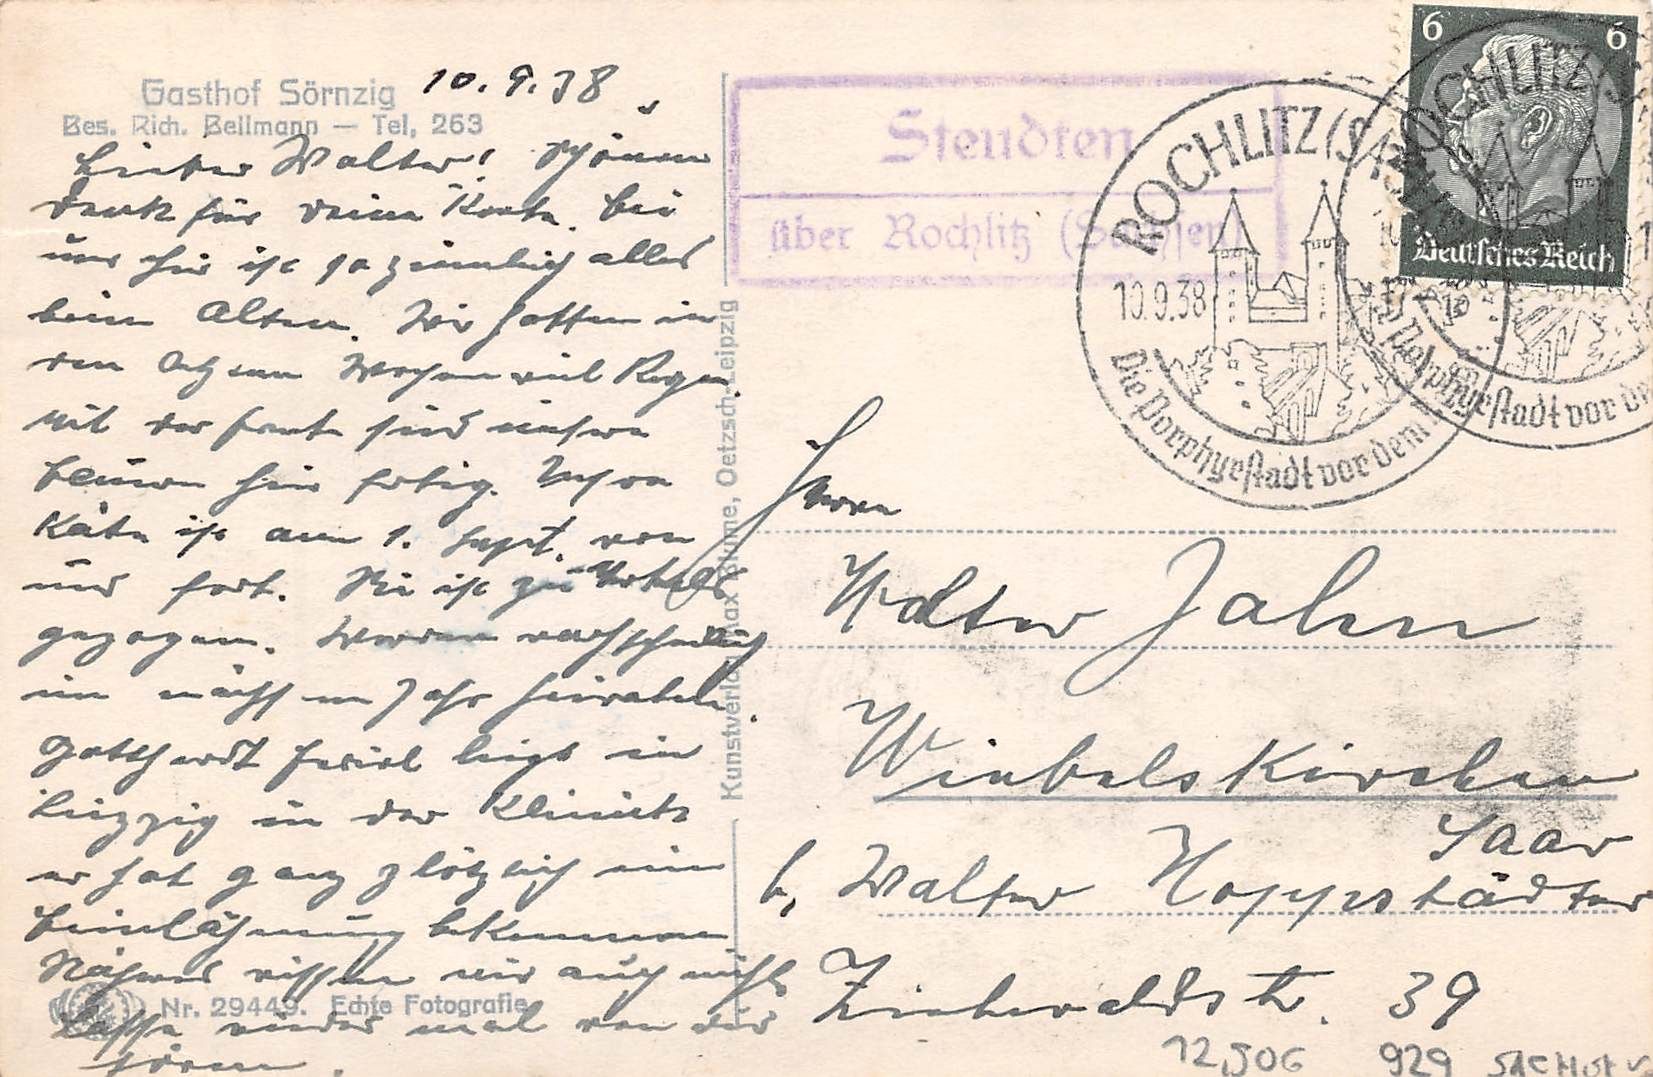 Gasthof Sörnzig
Bes. Rich. Bellmann — Tel. 263
10.9.38
Lieber Walter! Schönen
Dank für deine Karte. Bei
uns hier ist ja ziemlich alles
beim Alten. Wir hatten in
den letzten Wochen viel Regen
mit der Ernte sind unsere
Bauern hier fertig. Unsere
Käte ist am 1. Sept. von
uns fort. Sie ist zu
gezogen. Werden wahrscheinlich
im nächsten Jahr heiraten.
Gotthardt liegt in
Leipzig in der Klinik
er hat ganz plötzlich eine
Beinlähmung bekommen
Näheres wissen wir auch nicht
Lasse wieder mal von dir
hören.
Nr. 29449. Echte Fotografie
Kunstverlag Max Blume, Oetzsch-Leipzig
Stendten
über Rochlitz (Sachsen)
ROCHLITZ (SA
10.9.38
Die Porphyrstadt vor dem
ROCHLITZ (S
Die Porphyrstadt vor de
6 6
Deutsches Reich
Herrn
Walter Jahn
Wiebelskirchen
Saar
b. Walter Hoppstädter
Ziehwaldstr. 39
12,50G 929